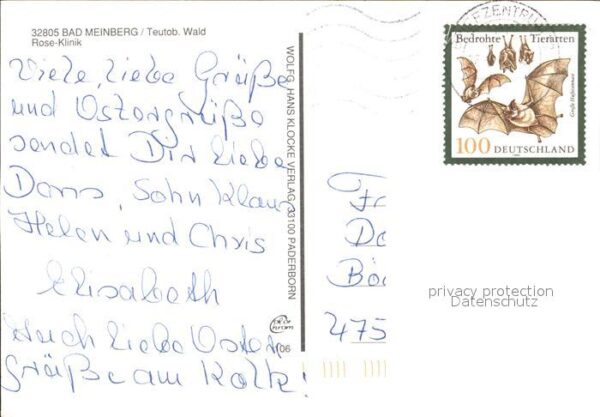 32805 BAD MEINBERG / Teutob. Wald
Rose-Klinik
Viele, liebe Grüße
und Ostergrüße
sendet Dir liebe
Doris, Sohn Klaus
Helen und Chris
Elisabeth
Auch liebe Oster
grüße am Kolk!
WOLFG. HANS KLOCKE VERLAG, 33100 PADERBORN
06
BRIEFZENTRUM
Bedrohte Tierarten
Große Hufeisennase
100 DEUTSCHLAND
Fr
Do
Bö
475
privacy protection
Datenschutz